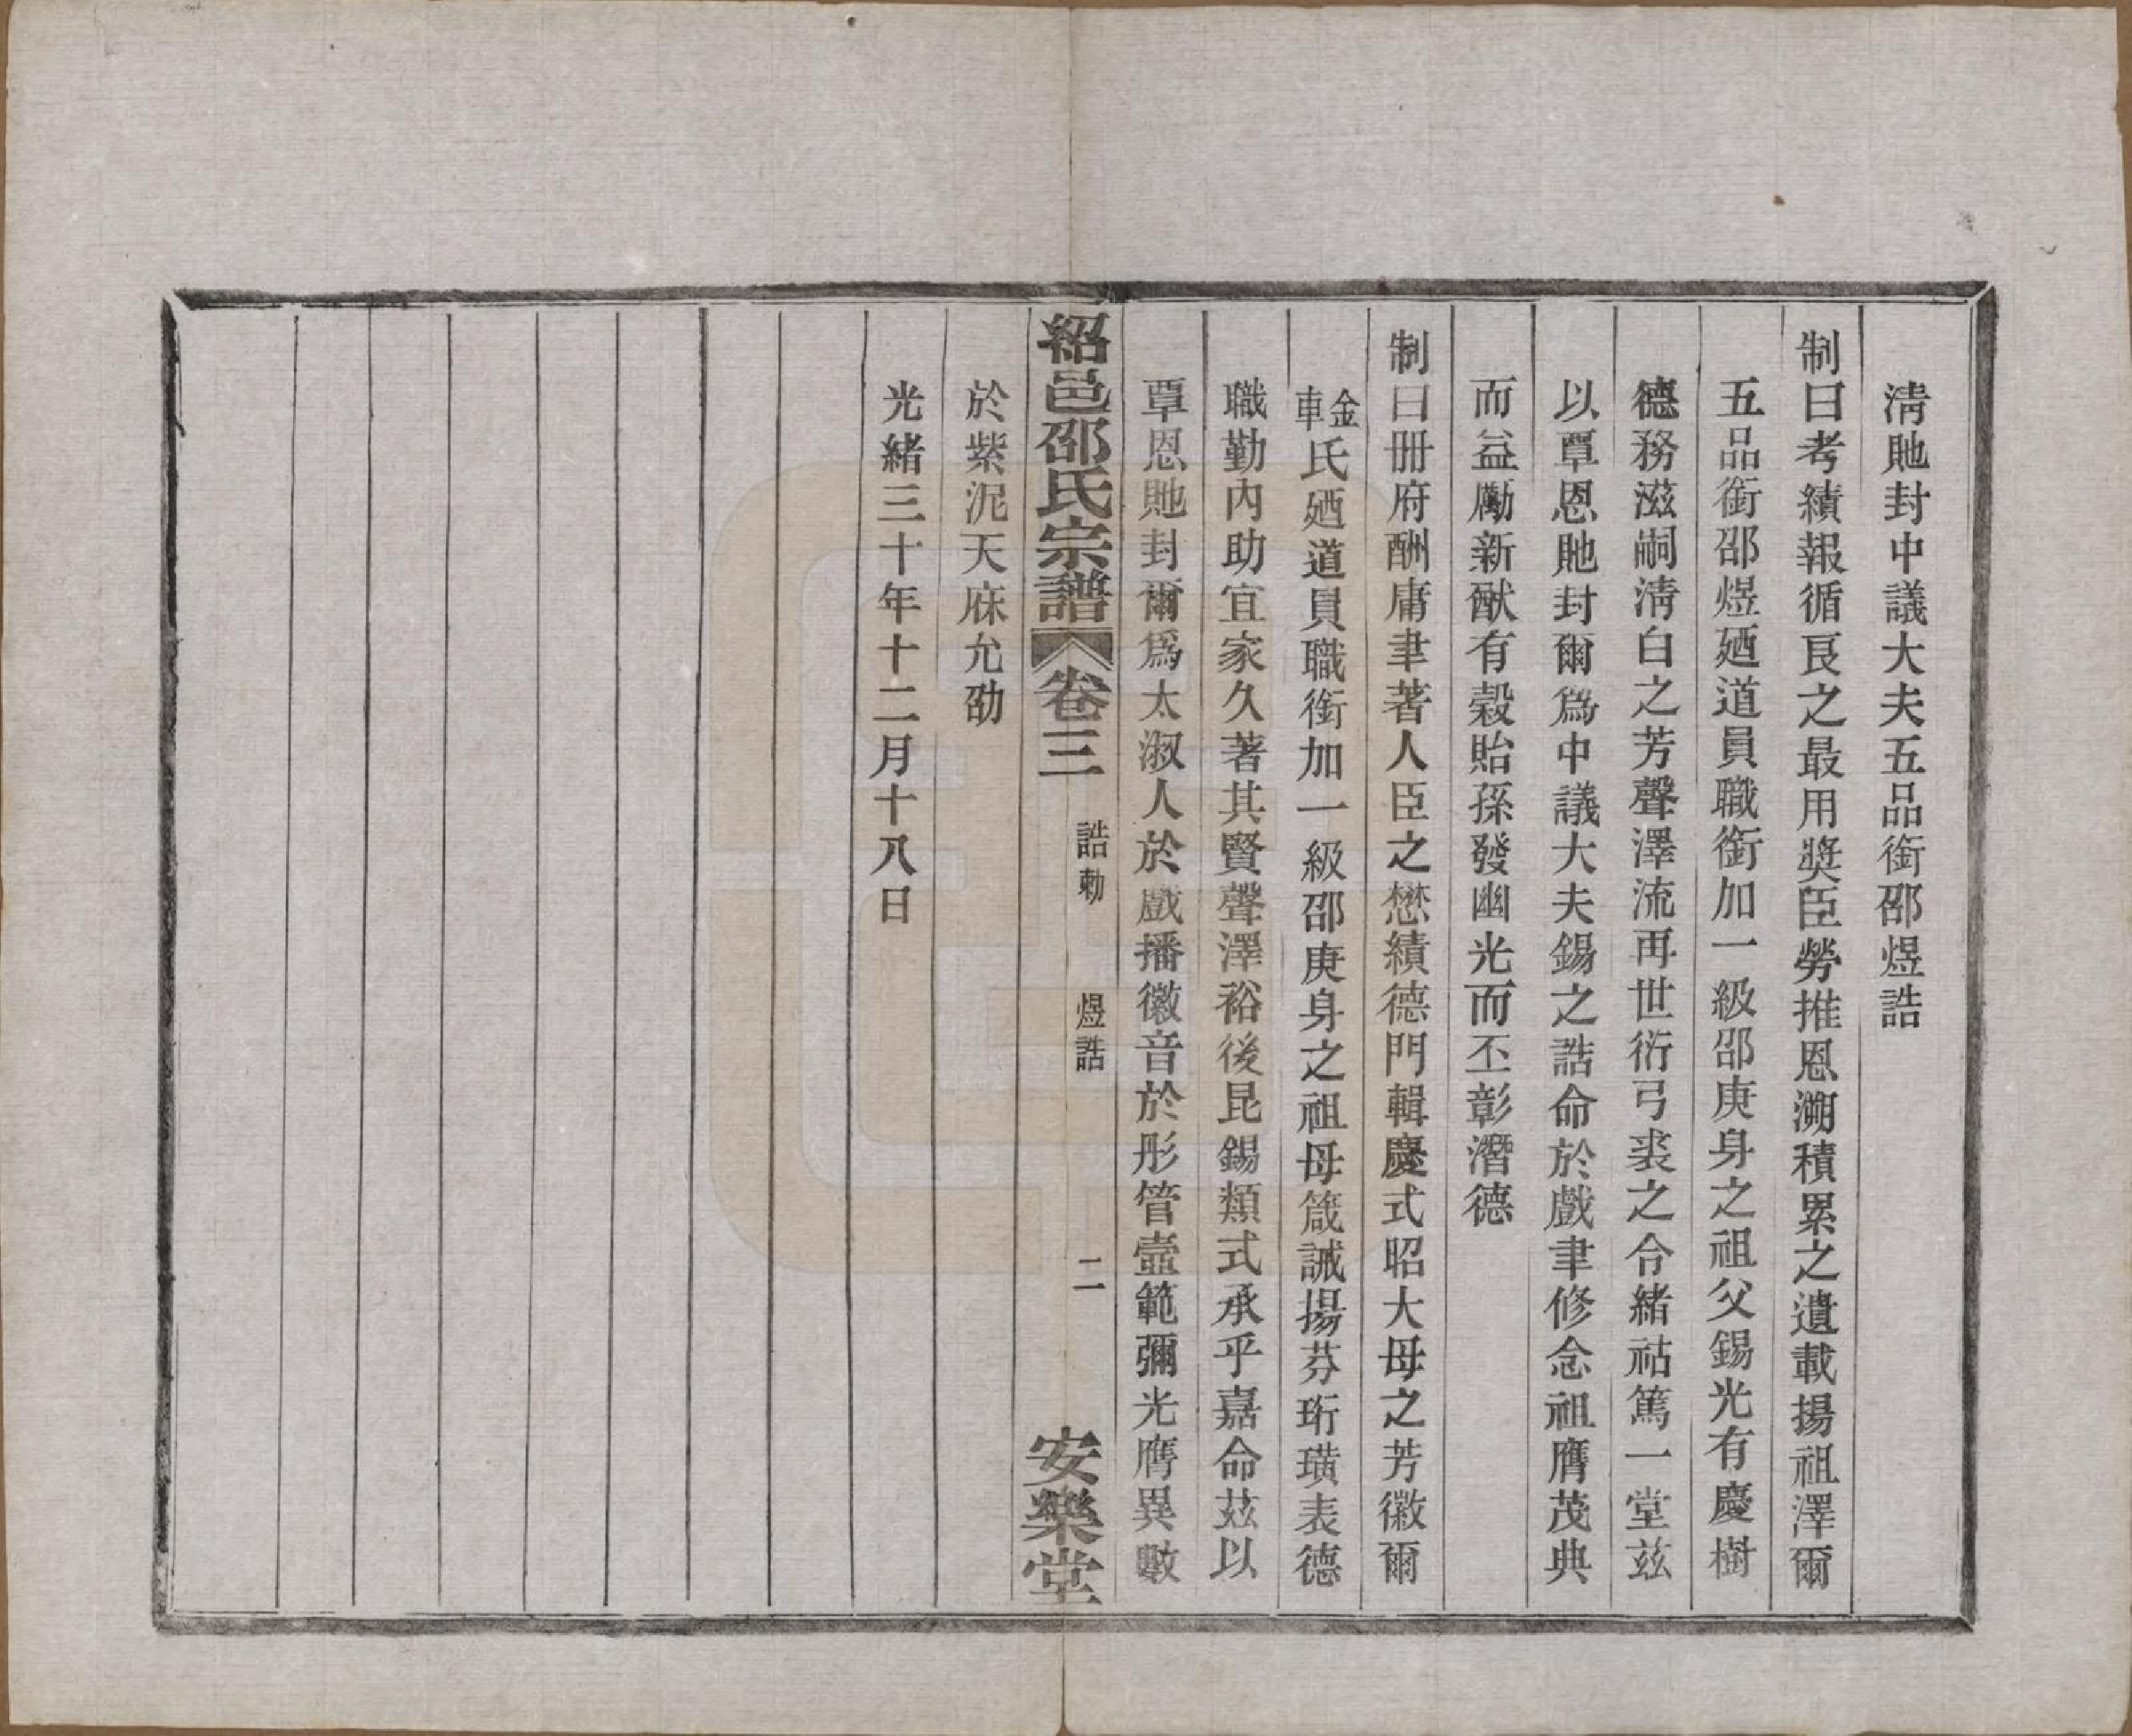 淸貤封中議大夫五品銜邵煜誥
制曰考績報循良之最用奬臣勞推恩溯積累之遺載揚祖澤爾
五品銜邵煜廼道員職銜加一級邵庚身之祖父錫光有慶樹
德務滋嗣淸白之芳聲澤流再世衍弓裘之令緒祜篤一堂茲
以覃恩貤封爾爲中議大夫錫之誥命於戲聿修念祖膺茂典
而益勵新猷有穀貽孫發幽光而丕彰潛德
制曰册府酬庸聿著人臣之懋績德門輯慶式昭大母之芳徽爾
金車氏廼道員職銜加一級邵庚身之祖母箴誡揚芬珩璜表德
職勤內助宜家久著其賢聲澤裕後昆錫類式承乎嘉命茲以
覃恩貤封爾爲太淑人於戲播徽音於彤管壼範彌光膺異數
紹邑邵氏宗譜 卷三 誥勅 煜誥 二 安樂堂
於紫泥天庥允劭
光緒三十年十二月十八日